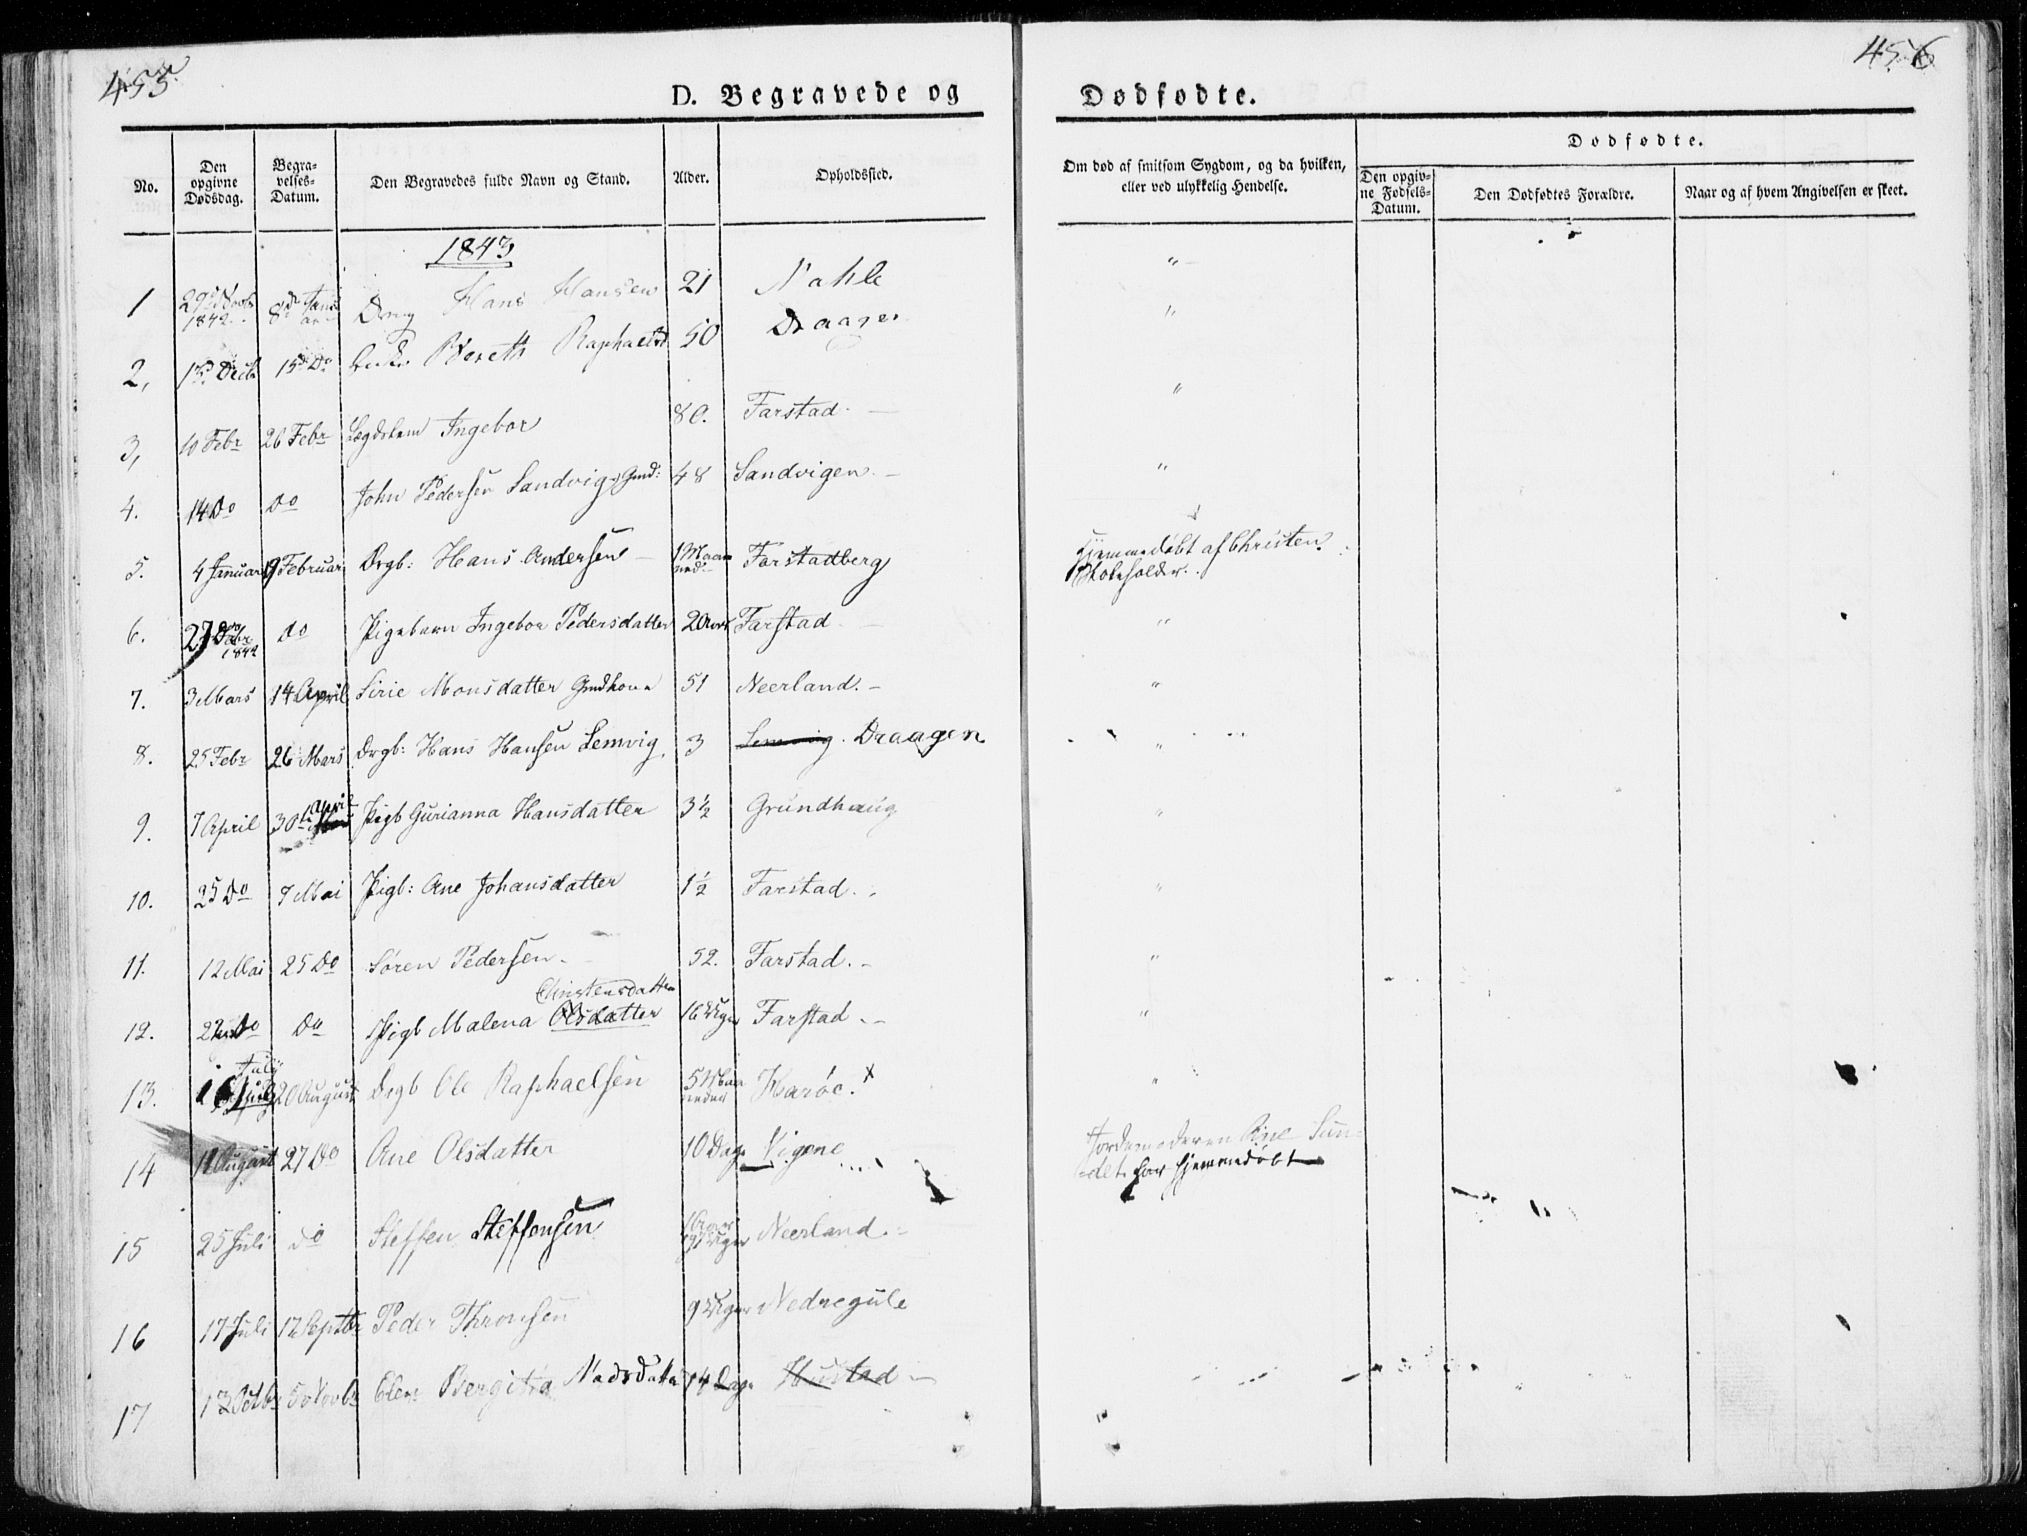 455
456
D. Begravede og Dødfødte.
No.
Den opgivne Dødsdag.
Begravelses-Datum.
Den Begravedes fulde Navn og Stand.
Alder.
Opholdssted.
Om død af smitsom Sygdom, og da hvilken, eller ved ulykkelig Hendelse.
Dødfødte.
Den opgivne Fødsels-Datum.
Den Dødfødtes Forældre.
Naar og af hvem Angivelsen er skeet.
1843
1 29 Novbr 1842 8d Januar Drng Hans Hansen 21 Nahle "
2, Decb 15d Do Enke Bereth Raphaelsd 50 Draagen "
3, 10 Febr 26 Febr Lægdslem Ingebor 80. Farstad. "
4. 14 Do Do John Pedersen Sandvig Gmd: 48 Sandvigen "
5. 4 Januar 19 Februar Drgb: Hans Andersen 1 Maaned Farstadberg Hjemmedøbt af Christen Skoleholder.
6. 27 Decbr 1842 do Pigebarn Ingebor Pedersdatter 2 Aar Farstad "
7. 3 Mars 14 April Sirie Monsdatter Gmdkone 51 Neerland. "
8. 25 Febr 26 Mars Drgb: Hans Hansen Lemvig 3 Lemvig. Draagen "
9. 7 April 30te April Pigb Gurianna Hansdatter 3½ Grundhaug "
10. 25 Do 7 Mai Pigb: Ane Johansdatter 1½ Farstad. "
11. 12 Mai 25 Do Søren Pedersen 52. Farstad. "
Christensdatter
12. 22 Do Do Pigb Malena Olsdatter 16 Uger Farstad. "
13. 16 July 20 August Drgb Ole Raphaelsen 5 Maaneder Harøe. x "
14 11 August 27 Do Ane Olsdatter 10 Dage Vigene Jordemoderen Ane Sundet har hjemmedøbt
15 25 Juli Do Steffen Steffensen 1 Aar Uger Neerland
16 17 Juli 17 Septbr Peder Thronsen 9 Uger Nedregule
17 13 Octbr 5 Novbr Elen Bergitha Madsdatter 14 Dage Hustad